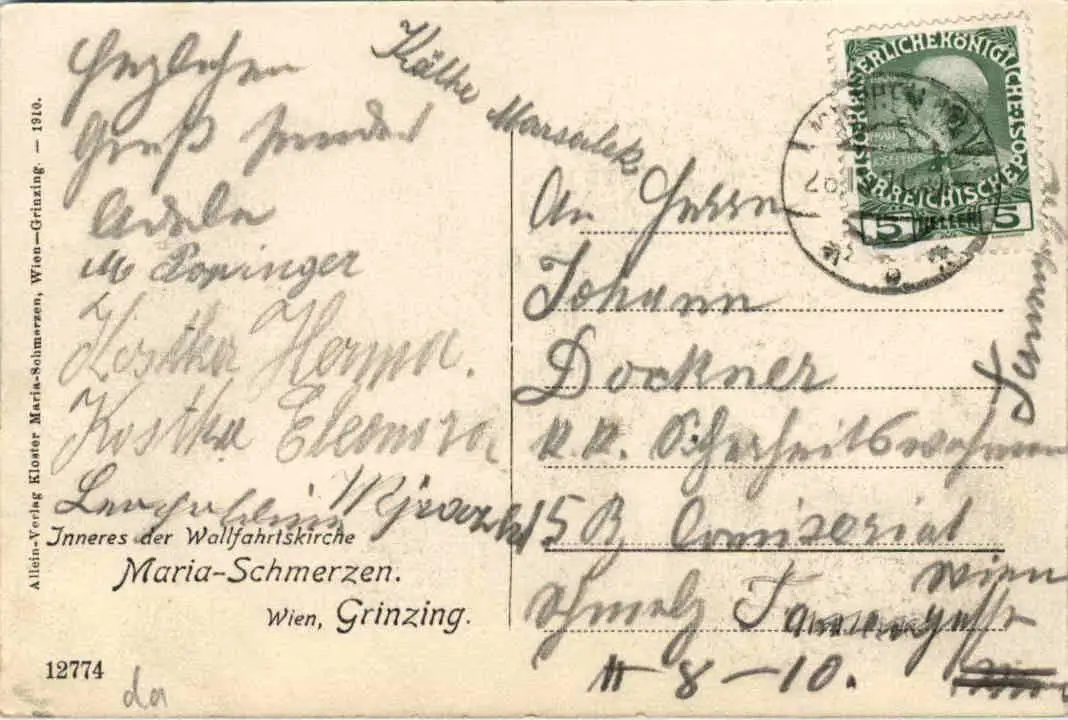 Allein-Verlag Kloster Maria-Schmerzen, Wien–Grinzing. — 1910.
Herzlichen
Gruß sendet
Adele
M Popinger
Kostka Herma.
Kostka Eleonora
Käthe Marsalek
Inneres der Wallfahrtskirche
Maria-Schmerzen.
Wien, Grinzing.
12774
da
KAISERLICHE KÖNIGLICHE
ÖSTERREICHISCHE POST
5 HELLER 5
An Herrn
Johann
Dockner
k. k. Sicherheitswachmann
15 B Comisariat
Wien
Schmelz Tannengasse
8–10.